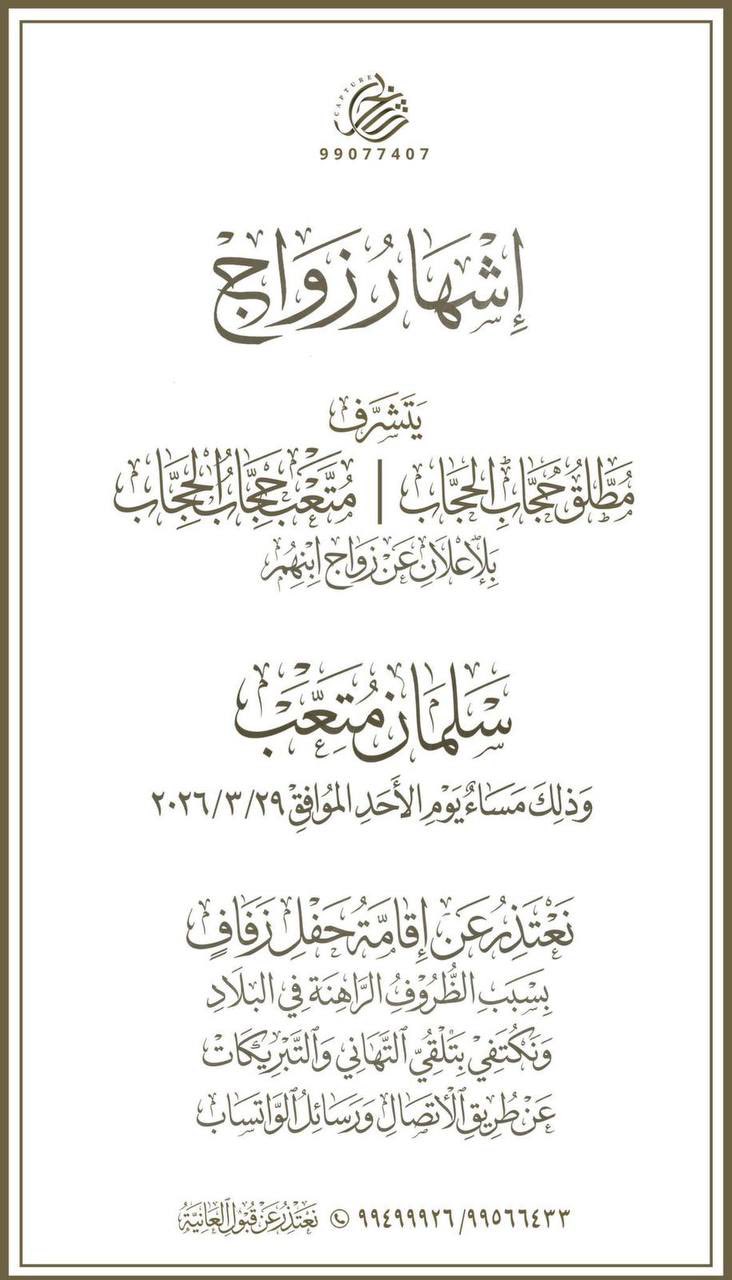 CAPTURE
99077407
إشهار زواج
يتشرف
مطلق حجاب الحجاب | متعب حجاب الحجاب
بلإعلان عن زواج ابنهم
سلمان متعب
وذلك مساء يوم الأحد الموافق ٢٠٢٦/٣/٢٩
نعتذر عن إقامة حفل زفاف
بسبب الظروف الراهنة في البلاد
ونكتفي بتلقي التهاني والتبريكات
عن طريق الاتصال ورسائل الواتساب
٩٩٥٦٦٤٣٣/ ٩٩٤٩٩٩٢٦ نعتذر عن قبول العانية